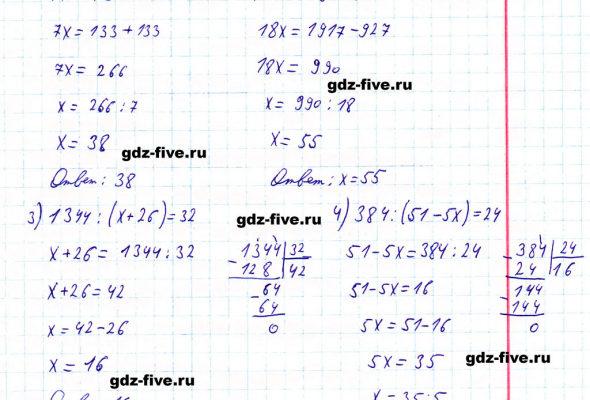 7x = 133 + 133
7x = 266
x = 266 : 7
x = 38
Ответ: 38
18x = 1917 - 927
18x = 990
gdz-five.ru
x = 990 : 18
x = 55
gdz-five.ru
Ответ: x = 55
3) 1344 : (x + 26) = 32
gdz-five.ru
x + 26 = 1344 : 32
x + 26 = 42
x = 42 - 26
x = 16
gdz-five.ru
1344 | 32
- 128 | 42
- 64
64
0
4) 384 : (51 - 5x) = 24
51 - 5x = 384 : 24
51 - 5x = 16
5x = 51 - 16
5x = 35
gdz-five.ru
x = 35 : 5
- 384 | 24
24 | 16
- 144
144
0